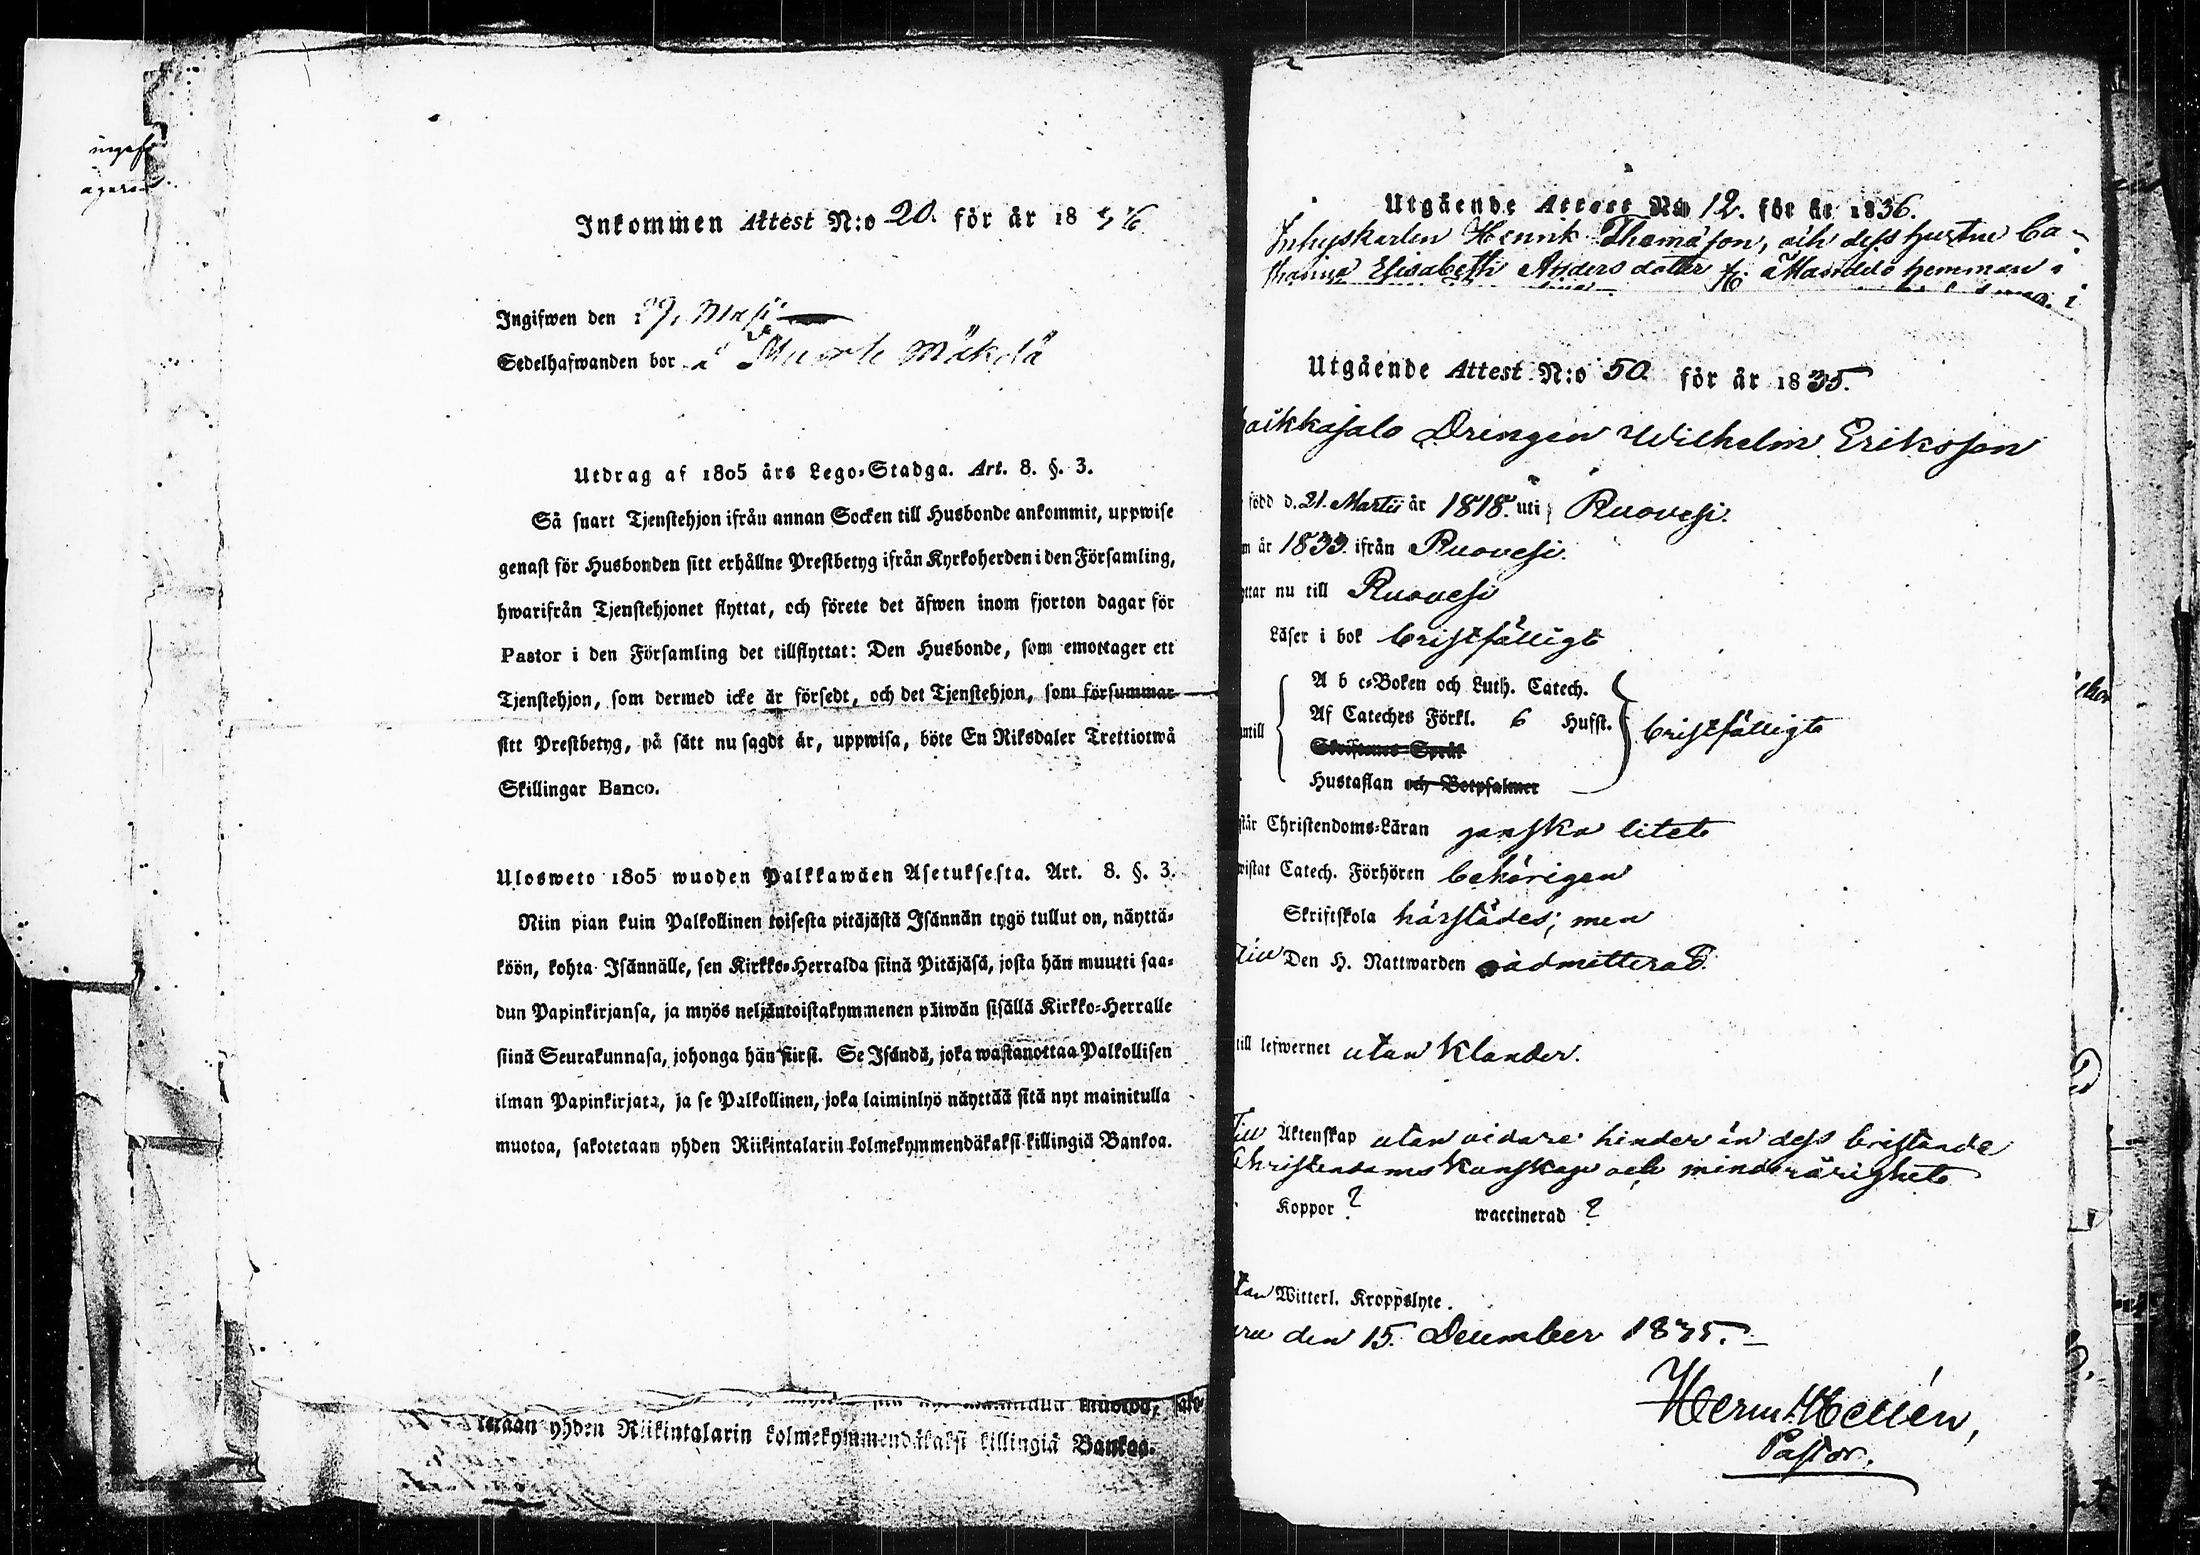 Inkommen Attest N:o 20. för år 1836
Ingifwen den 29. Maji
Sedelhafwanden bor i Muorle Mäkelä
Utdrag af 1805 års Lego-Stadga. Art. 8. §. 3.
Så snart Tjenstehjon ifrån annan Socken till Husbonde ankommit, uppwise
genast för Husbonden sitt erhållne Prestbetyg ifrån Kyrkoherden i den Församling,
hwarifrån Tjenstehjonet flyttat, och förete det äfwen inom fjorton dagar för
Pastor i den Församling det tillflyttat: Den Husbonde, som emottager ett
Tjenstehjon, som dermed icke är försedt, och det Tjenstehjon, som försummar
sitt Prestbetyg, på sätt nu sagdt är, uppwisa, böte En Riksdaler Trettiotwå
Skillingar Banco.
Ulosweto 1805 wuoden Palkkawäen Asetuksesta. Art. 8. §. 3.
Niin pian kuin Palkollinen toisesta pitäjästä Isännän tygö tullut on, näyttä-
köön, kohta Isännälle, sen Kirkko-Herralda siinä Pitäjäsä, josta hän muutti saa-
dun Papinkirjansa, ja myös neljäntoistakymmenen päiwän sisällä Kirkko-Herralle
siinä Seurakunnasa, johonga hän siirsi. Se Isändä, joka wastanottaa Palkollisen
ilman Papinkirjata, ja se Palkollinen, joka laiminlyö näyttää sitä nyt mainitulla
muotoa, sakotetaan yhden Riikintalarin kolmekymmendäkaksi killingiä Bankoa.
muotoa, sako-
tetaan yhden Riikintalarin kolmekymmendäkaksi killingiä Bankoa.
Utgående Attest No 12. för år 1836.
Inhyskarlen Henrik Thomasson, och dess hustru Ca-
tharina Elisabeth Andersdotter fr. Mandelo hemman i
Utgående Attest N:o 50. för år 1835.
aikkasalo Drengen Wilhelm Eriksson
född d. 21. Martii år 1818. uti Ruovesi.
m år 1833. ifrån Ruovesi.
yttar nu till Ruovesi
Läser i bok bristfälligt
A b c-Boken och Luth. Catech.
Af Cateches Förkl. 6 Hufst. bristfälligt
antill
Skriftenes Språk
Hustaflan och Botpsalmer
står Christendoms-Läran ganska litet
wistat Catech. Förhören behörigen
Skriftskola härstädes; men
Till Den H. Nattwarden oadmitterad.
till lefwernet utan klander.
Till Äktenskap utan vidare hinder än dess bristande
Christendoms kunskap och minderårighet
Koppor ? waccinerad ?
utan Witterl. Kroppslyte.
den 15. December 1835.
Herm. Hellén,
Pastor.